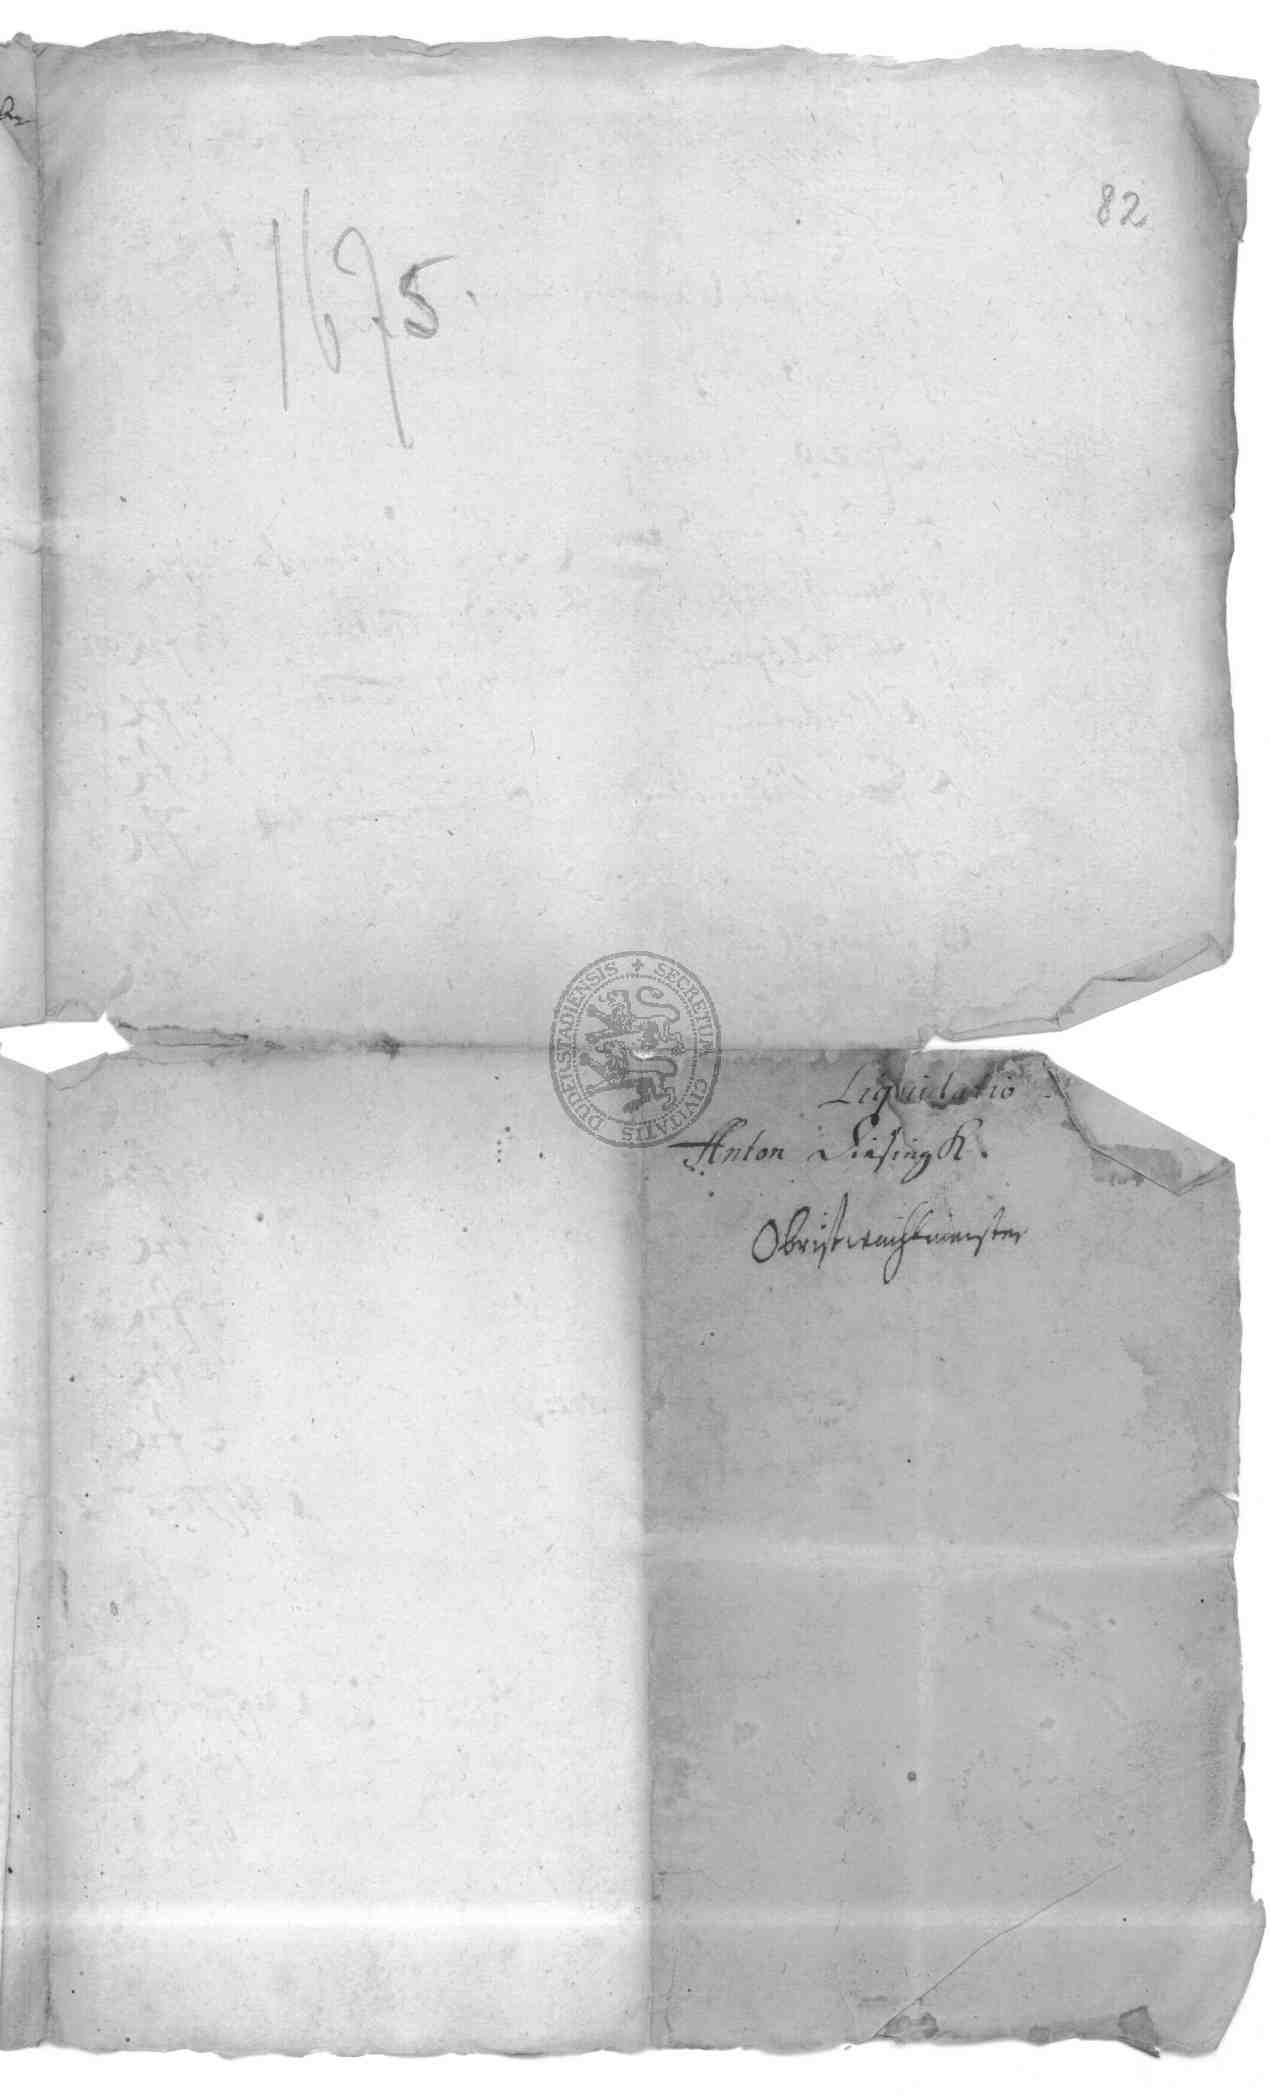 82
1675.
Liquidatio
Anton
Obristwachtmeister
SECRETUM CIVITATIS DUDERSTADIENSIS